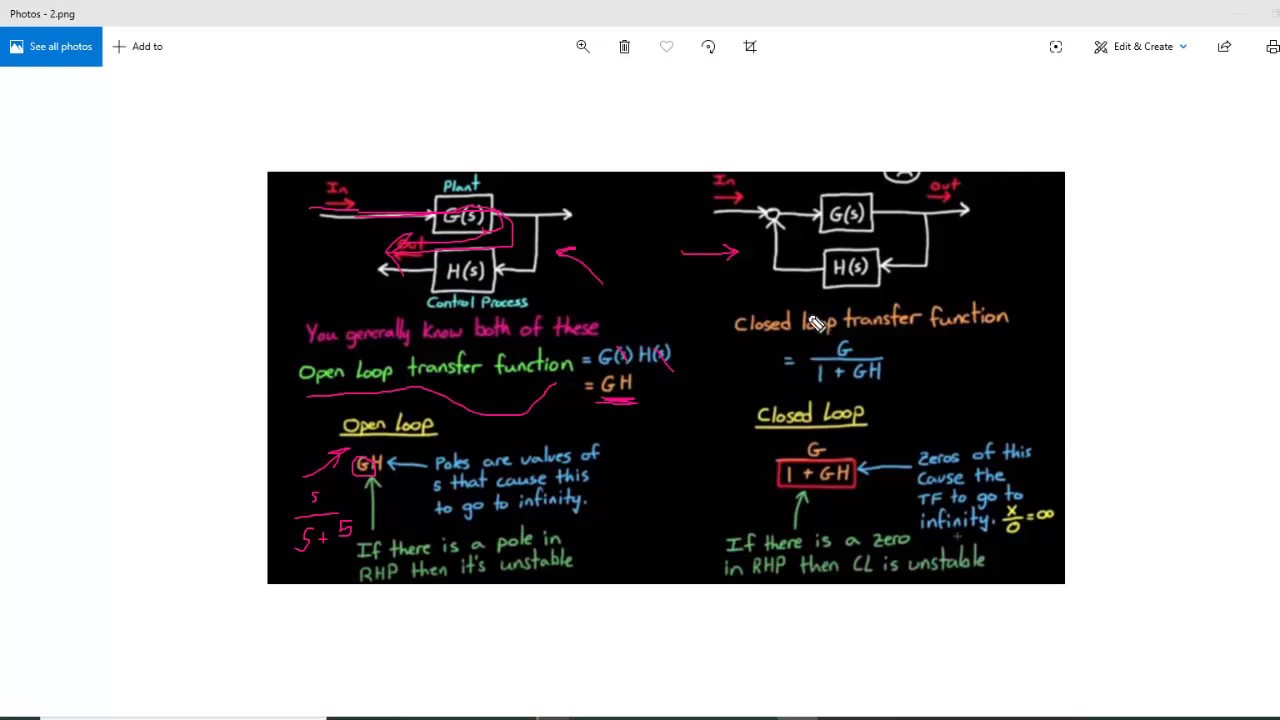 Photos - 2.png
See all photos
Add to
Edit & Create
In
Plant
G(s)
Out
H(s)
Control Process
You generally know both of these
Open loop transfer function = G(s) H(s)
= GH
Open loop
GH
Poles are values of
s that cause this
to go to infinity.
s
s+5
If there is a pole in
RHP then it's unstable
In
Out
G(s)
H(s)
Closed loop transfer function
= G
1 + GH
Closed loop
G
1 + GH
Zeros of this
Cause the
TF to go to
infinity. x/0 = ∞
If there is a zero
in RHP then CL is unstable